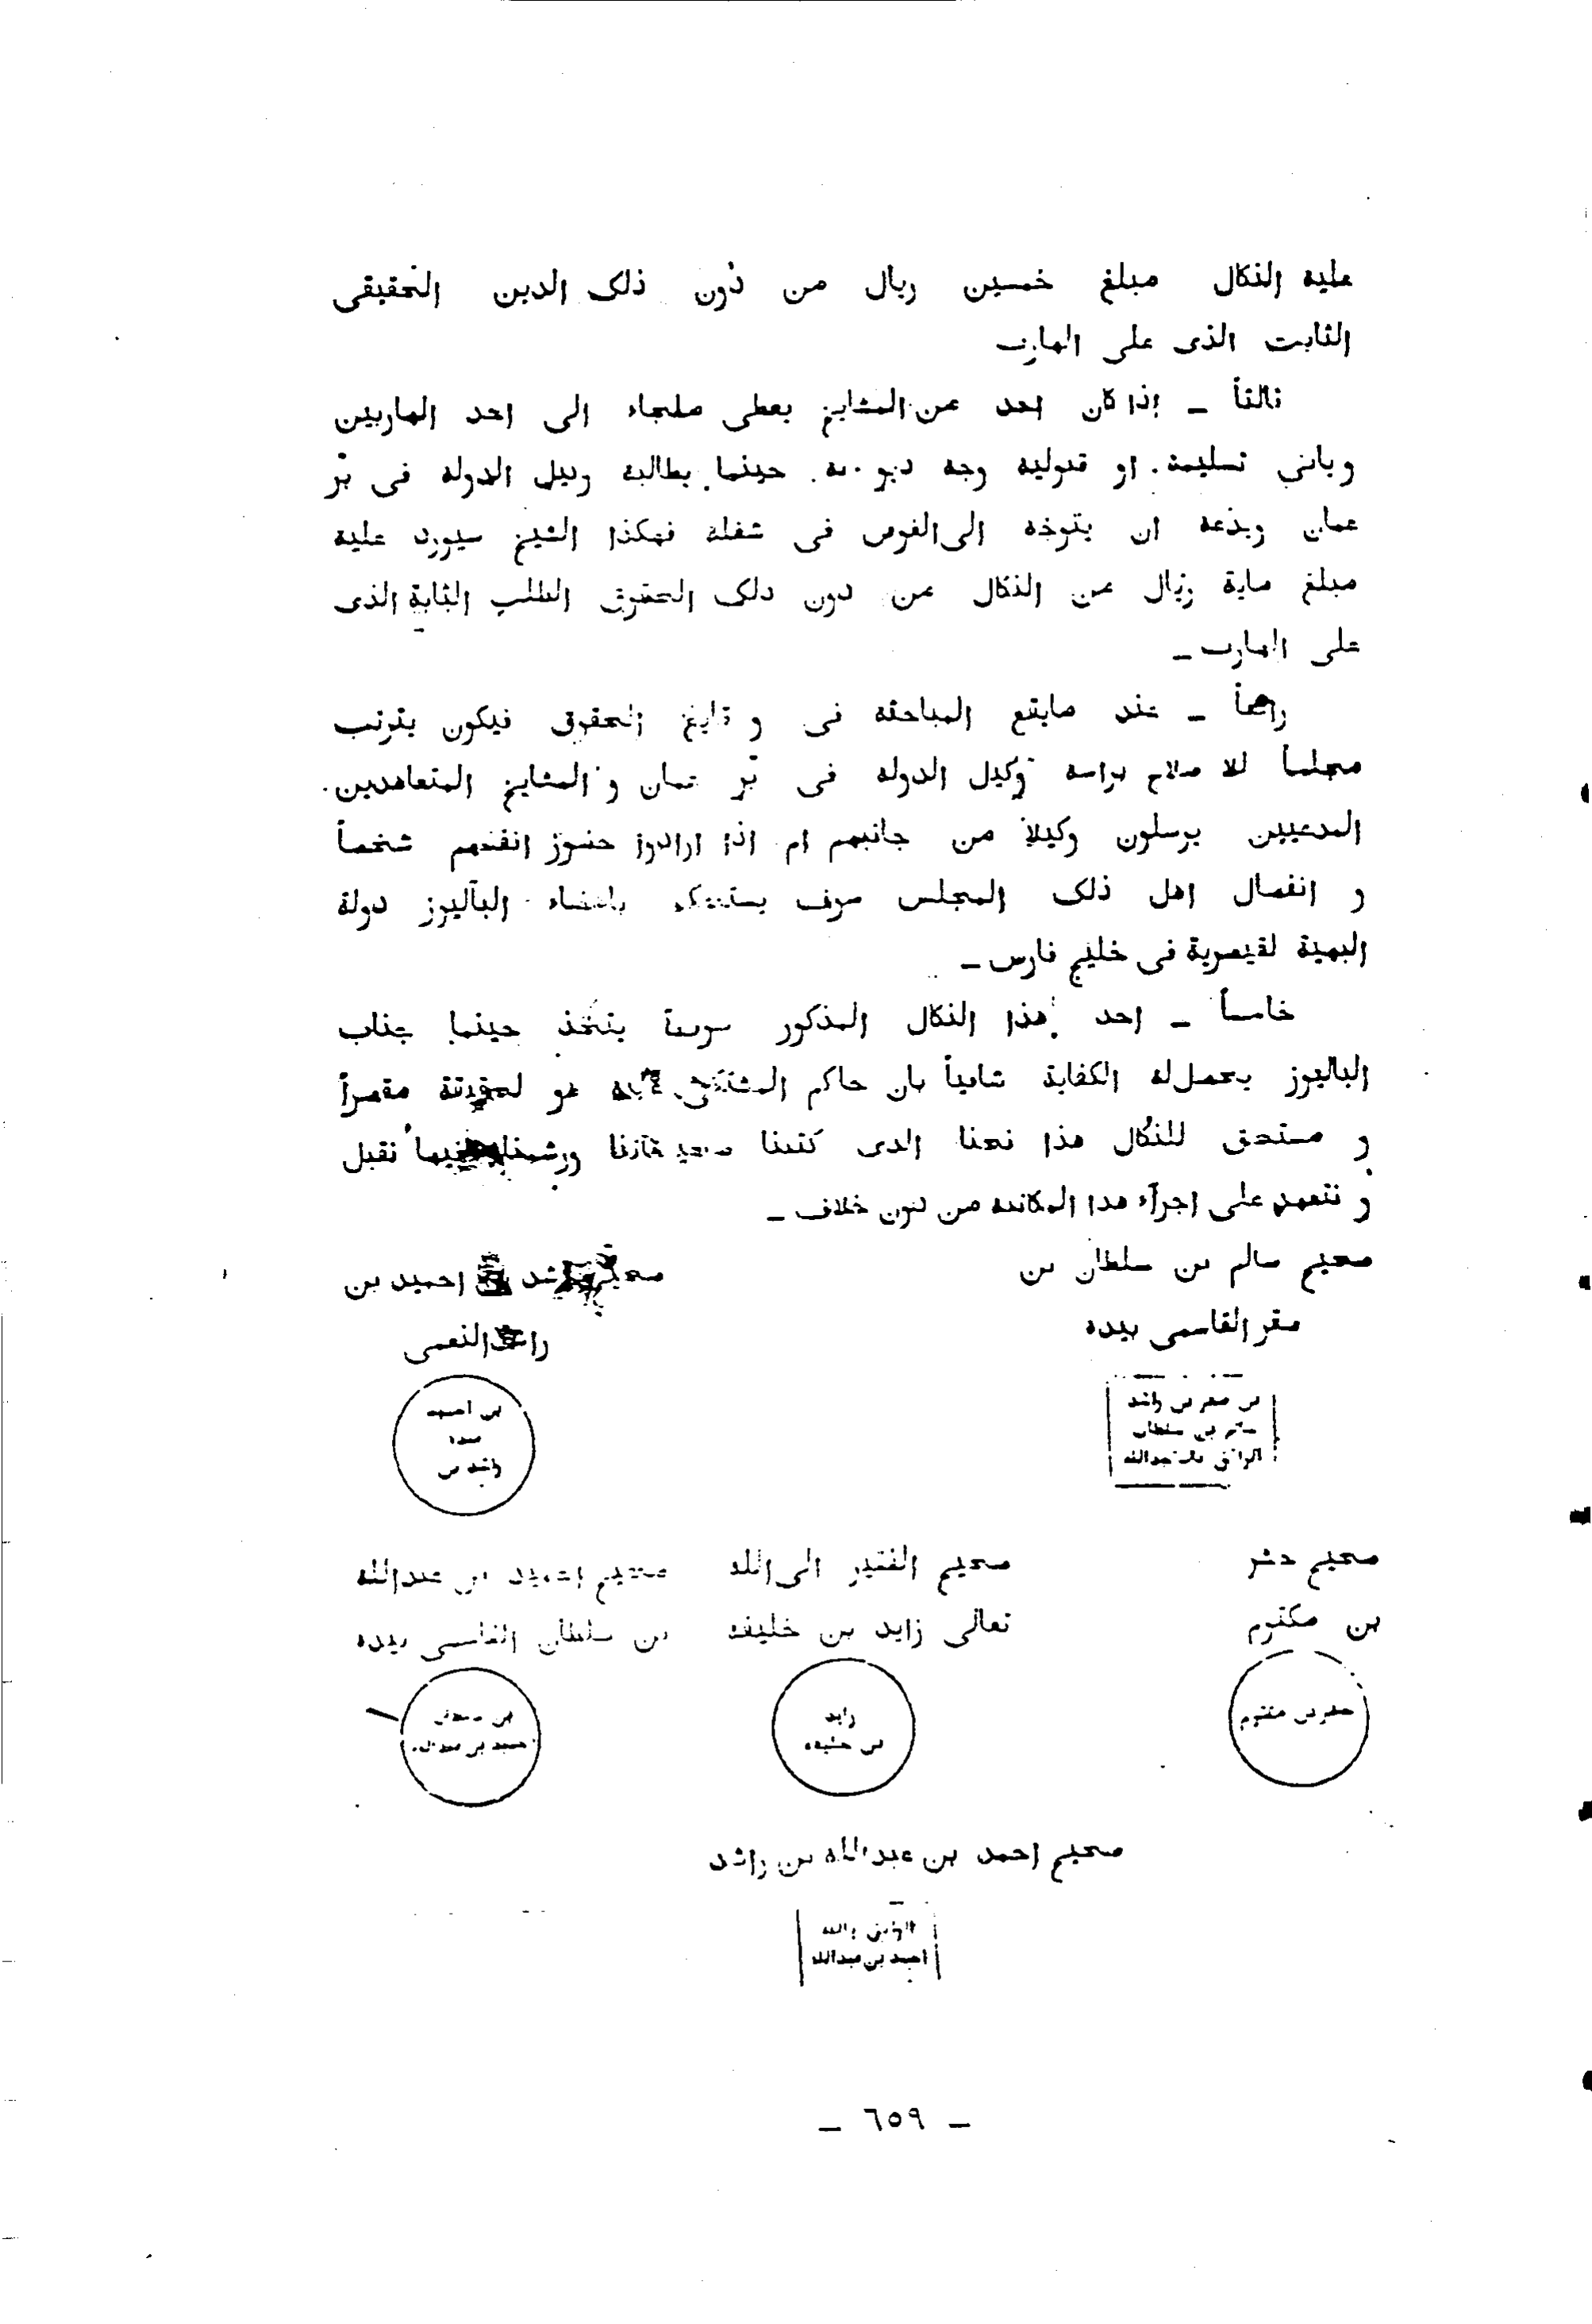 عليه النكال مبلغ خمسين ريال من دون ذلك الدين الحقيقى
الثابت الذى على الهارب
ثالثاً ـ إذا كان احد من المشايخ يعطى ملجاء الى احد الهاربين
ويابى تسليمة. او قبوليه وجه حينما يطالبه وكيل الدولة فى بر
عمان ويدعه ان يتوجه الى الغوص فى شغله فهكذا الشيخ سيورد عليه
مبلغ ماية ريال من النكال من دون ذلك الحقوق الطلب الثابة الذى
على الهارب ـ
رابعاً ـ عند مايقع المباحثه فى وقايع الحقوق فيكون يترتب
مجلساً للا صلاح براسة وكيل الدولة فى بر عمان و المشايخ المتعاهدين.
المدعيين يرسلون وكيلاً من جانبهم ام اذا ارادوا حضور انفسهم شخصاً
و انفصال اهل ذلك المجلس سوف يستحكم بامضاء الباليوز دولة
البهية لقيصرية فى خليج فارس ـ
خامساً ـ احد هذا النكال المذكور يتخذ حينما جناب
الباليوز يحصل له الكفاية شافياً بان حاكم المشتكى هو لحقيقة مقصراً
و مستحق للنكال هذا نحنا الذى كتبنا ورشمنا فيها نقبل
و نتعهد على اجراء هذا المكاتبه من دون خلاف ـ
صحيح سالم بن سلطان بن
صقر القاسمى بيده
بن صقر بن راشد
سالم بن سلطان
الواثق بالله عبدالله
صحيح راشد بن احميد بن
راشد النعمى
بن احميد
راشد بن
صحيح حشر
بن مكتوم
حشر بن مكتوم
صحيح الفقير الى الله
تعالى زايد بن خليفه
زايد
بن خليفه
صحيح احميد بن عبدالله
بن سلطان القاسمى بيده
بن سلطان
حميد بن عبدالله
صحيح احمد بن عبدالله بن راشد
الواثق بالله
احمد بن عبدالله
ـ ٦٥٩ ـ